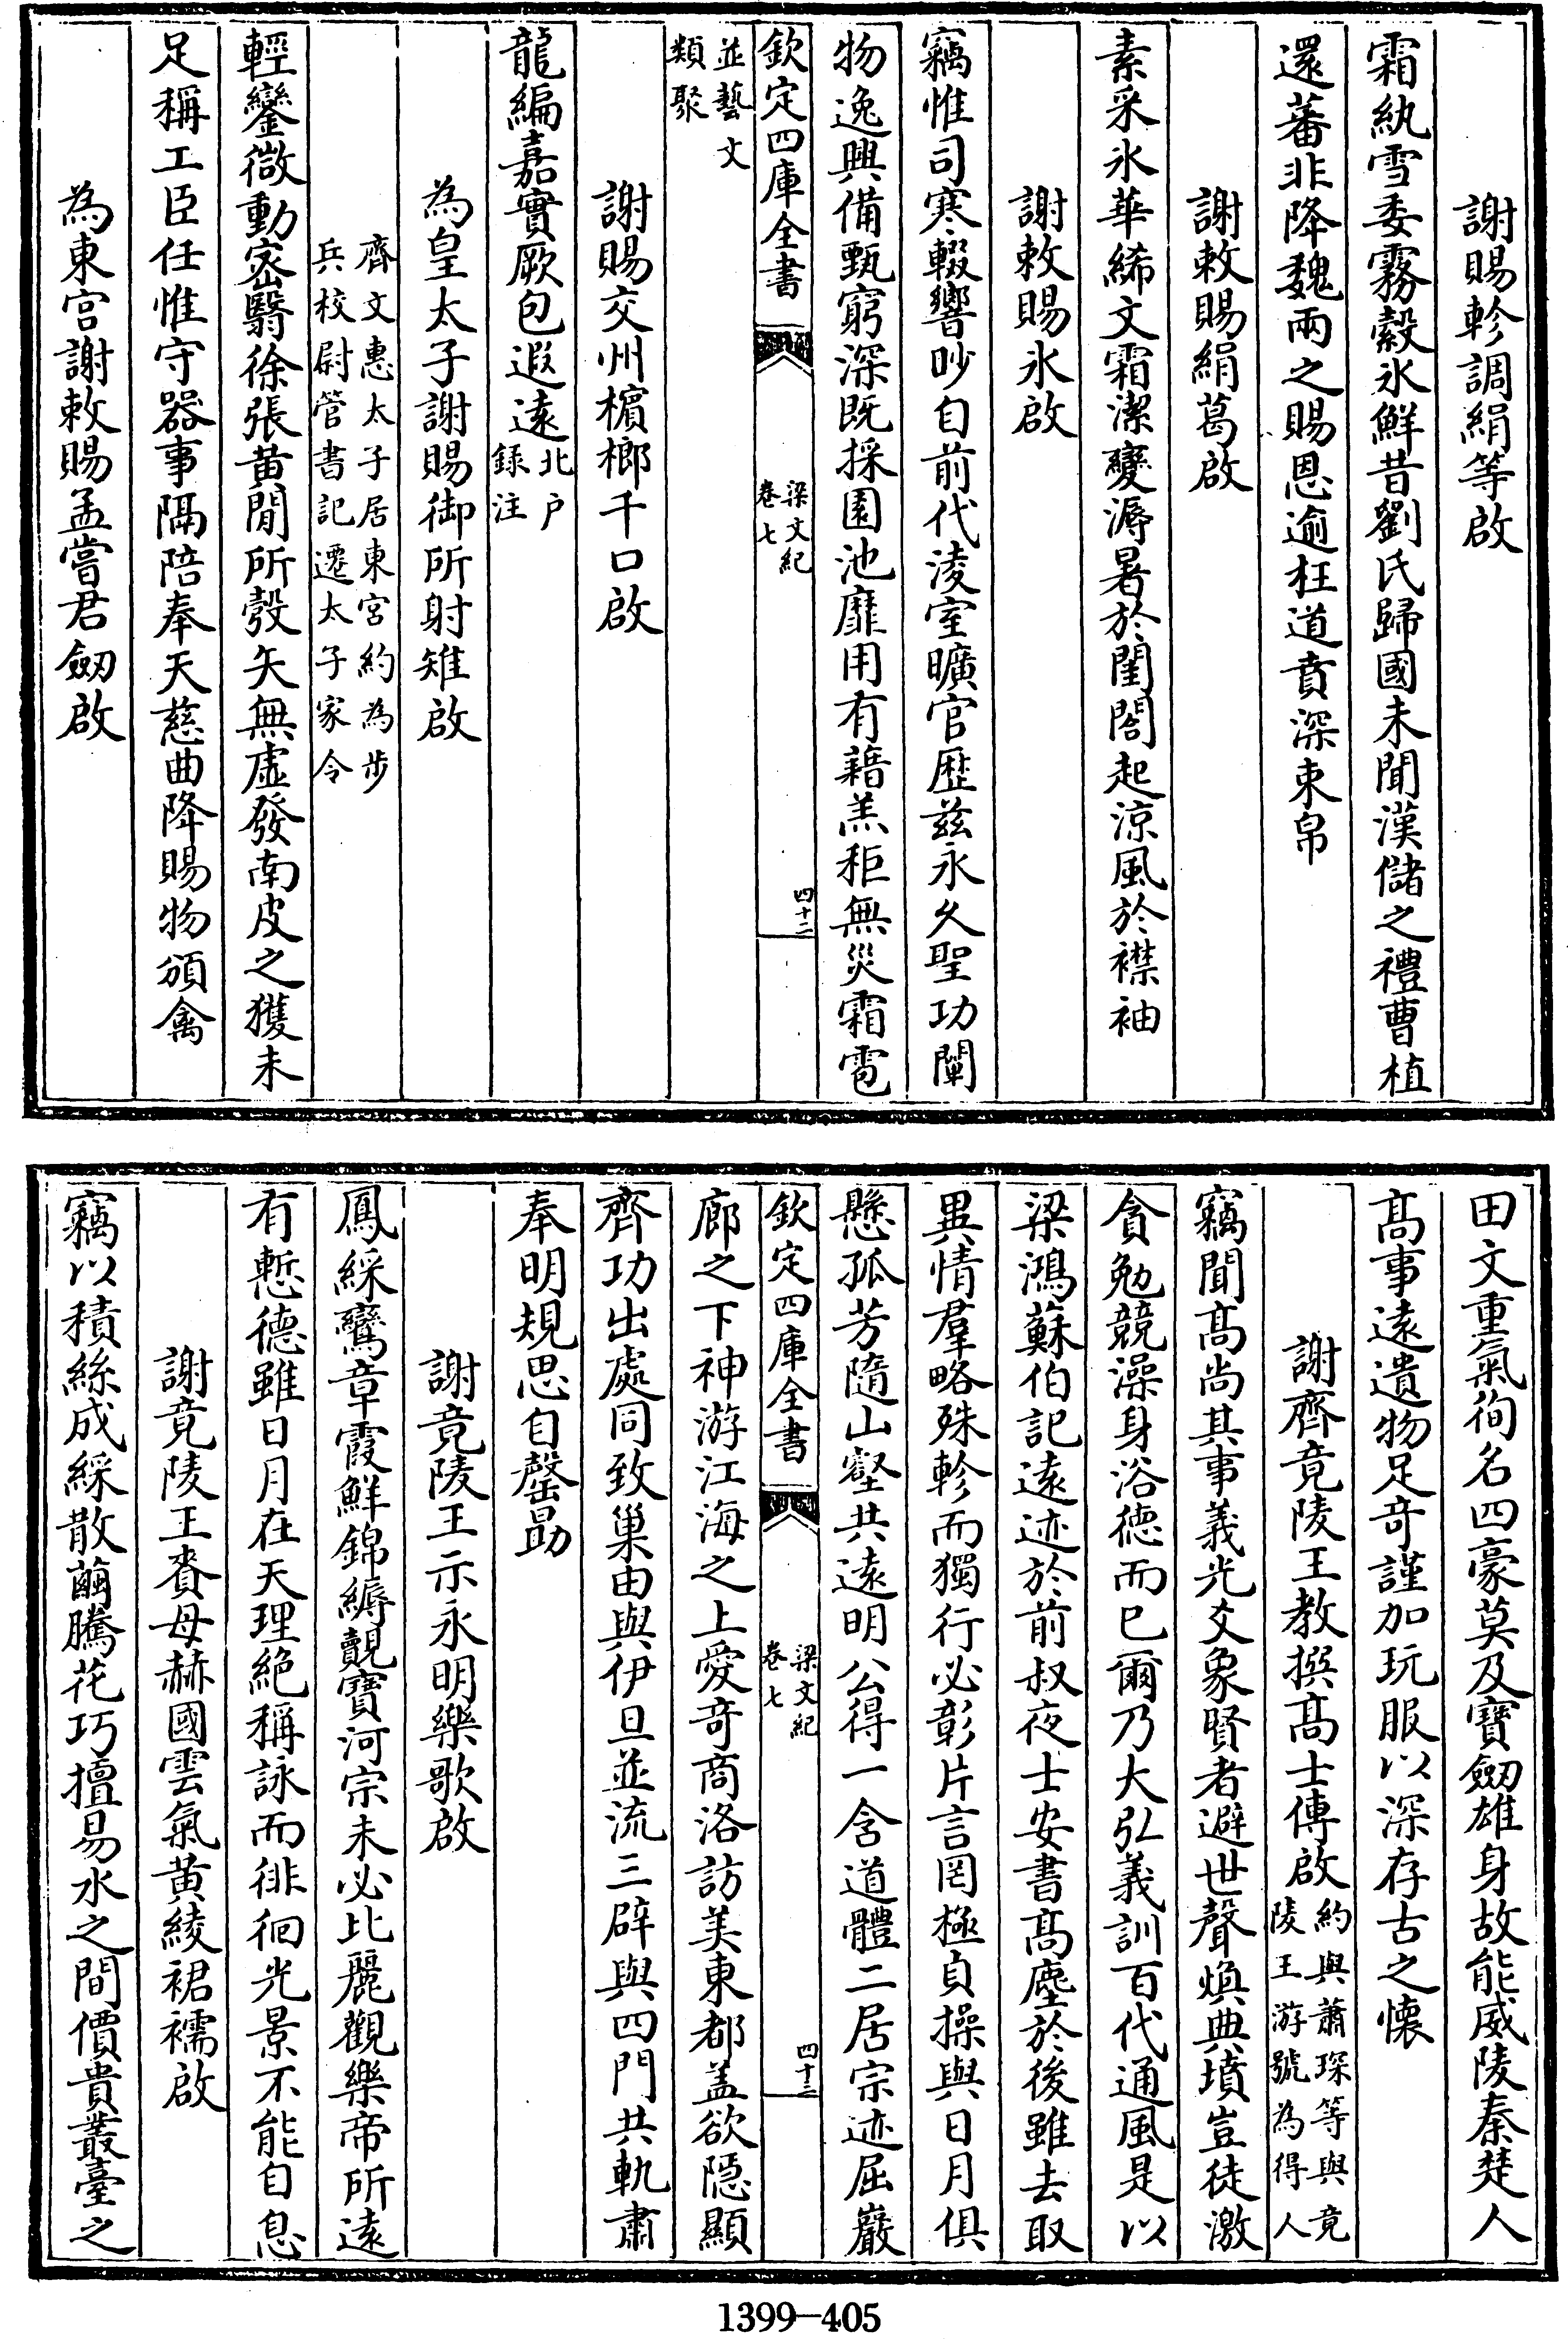 謝賜軫調絹等啟
霜紈雪委霧縠氷鮮昔劉氏歸國未聞漢儲之禮曹植
還蕃非降魏兩之賜恩逾枉道賁深束帛
謝敕賜絹葛啟
素采氷華絺文霜潔變溽暑於閨閤起涼風於襟袖
謝敕賜氷啟
竊惟司寒輟響眇自前代淩室曠官歴兹永久聖功闡
物逸興備甄窮深既採園池靡用有藉羔秬無災霜雹
欽定四庫全書
梁文紀
卷七
四十二
並藝文
類聚
謝賜交州檳榔千口啟
龍編嘉實厥包遐遠北户
録注
為皇太子謝賜御所射雉啟
齊文惠太子居東宮約為步
兵校尉管書記遷太子家令
輕鑾微動密翳徐張黄閒所彀矢無虛發南皮之獲未
足稱工臣任惟守器事隔陪奉天慈曲降賜物頒禽
為東宮謝敕賜孟嘗君劒啟
田文重氣徇名四豪莫及寶劒雄身故能威陵秦楚人
髙事遠遺物足奇謹加玩服以深存古之懷
謝齊竟陵王教撰髙士傳啟約與蕭琛等與竟
陵王游號為得人
竊聞髙尚其事義光爻象賢者避世聲煥典墳豈徒激
貪勉競澡身浴德而已爾乃大弘義訓百代通風是以
梁鴻蘇伯記遠迹於前叔夜士安書髙塵於後雖去取
異情羣略殊軫而獨行必彰片言罔極貞操與日月俱
懸孤芳隨山壑共遠明公得一含道體二居宗迹屈巖
欽定四庫全書
梁文紀
卷七
四十三
廊之下神游江海之上愛奇商洛訪美東都蓋欲隱顯
齊功出處同致巢由與伊旦並流三辟與四門共軌肅
奉明規思自罄勗
謝竟陵王示永明樂歌啟
鳳綵鸞章霞鮮錦縟覿寶河宗未必比麗觀樂帝所遠
有慙德雖日月在天理絶稱詠而徘徊光景不能自息
謝竟陵王賚母赫國雲氣黄綾裙襦啟
竊以積絲成綵散繭騰花巧擅易水之間價貴叢臺之
1399—405